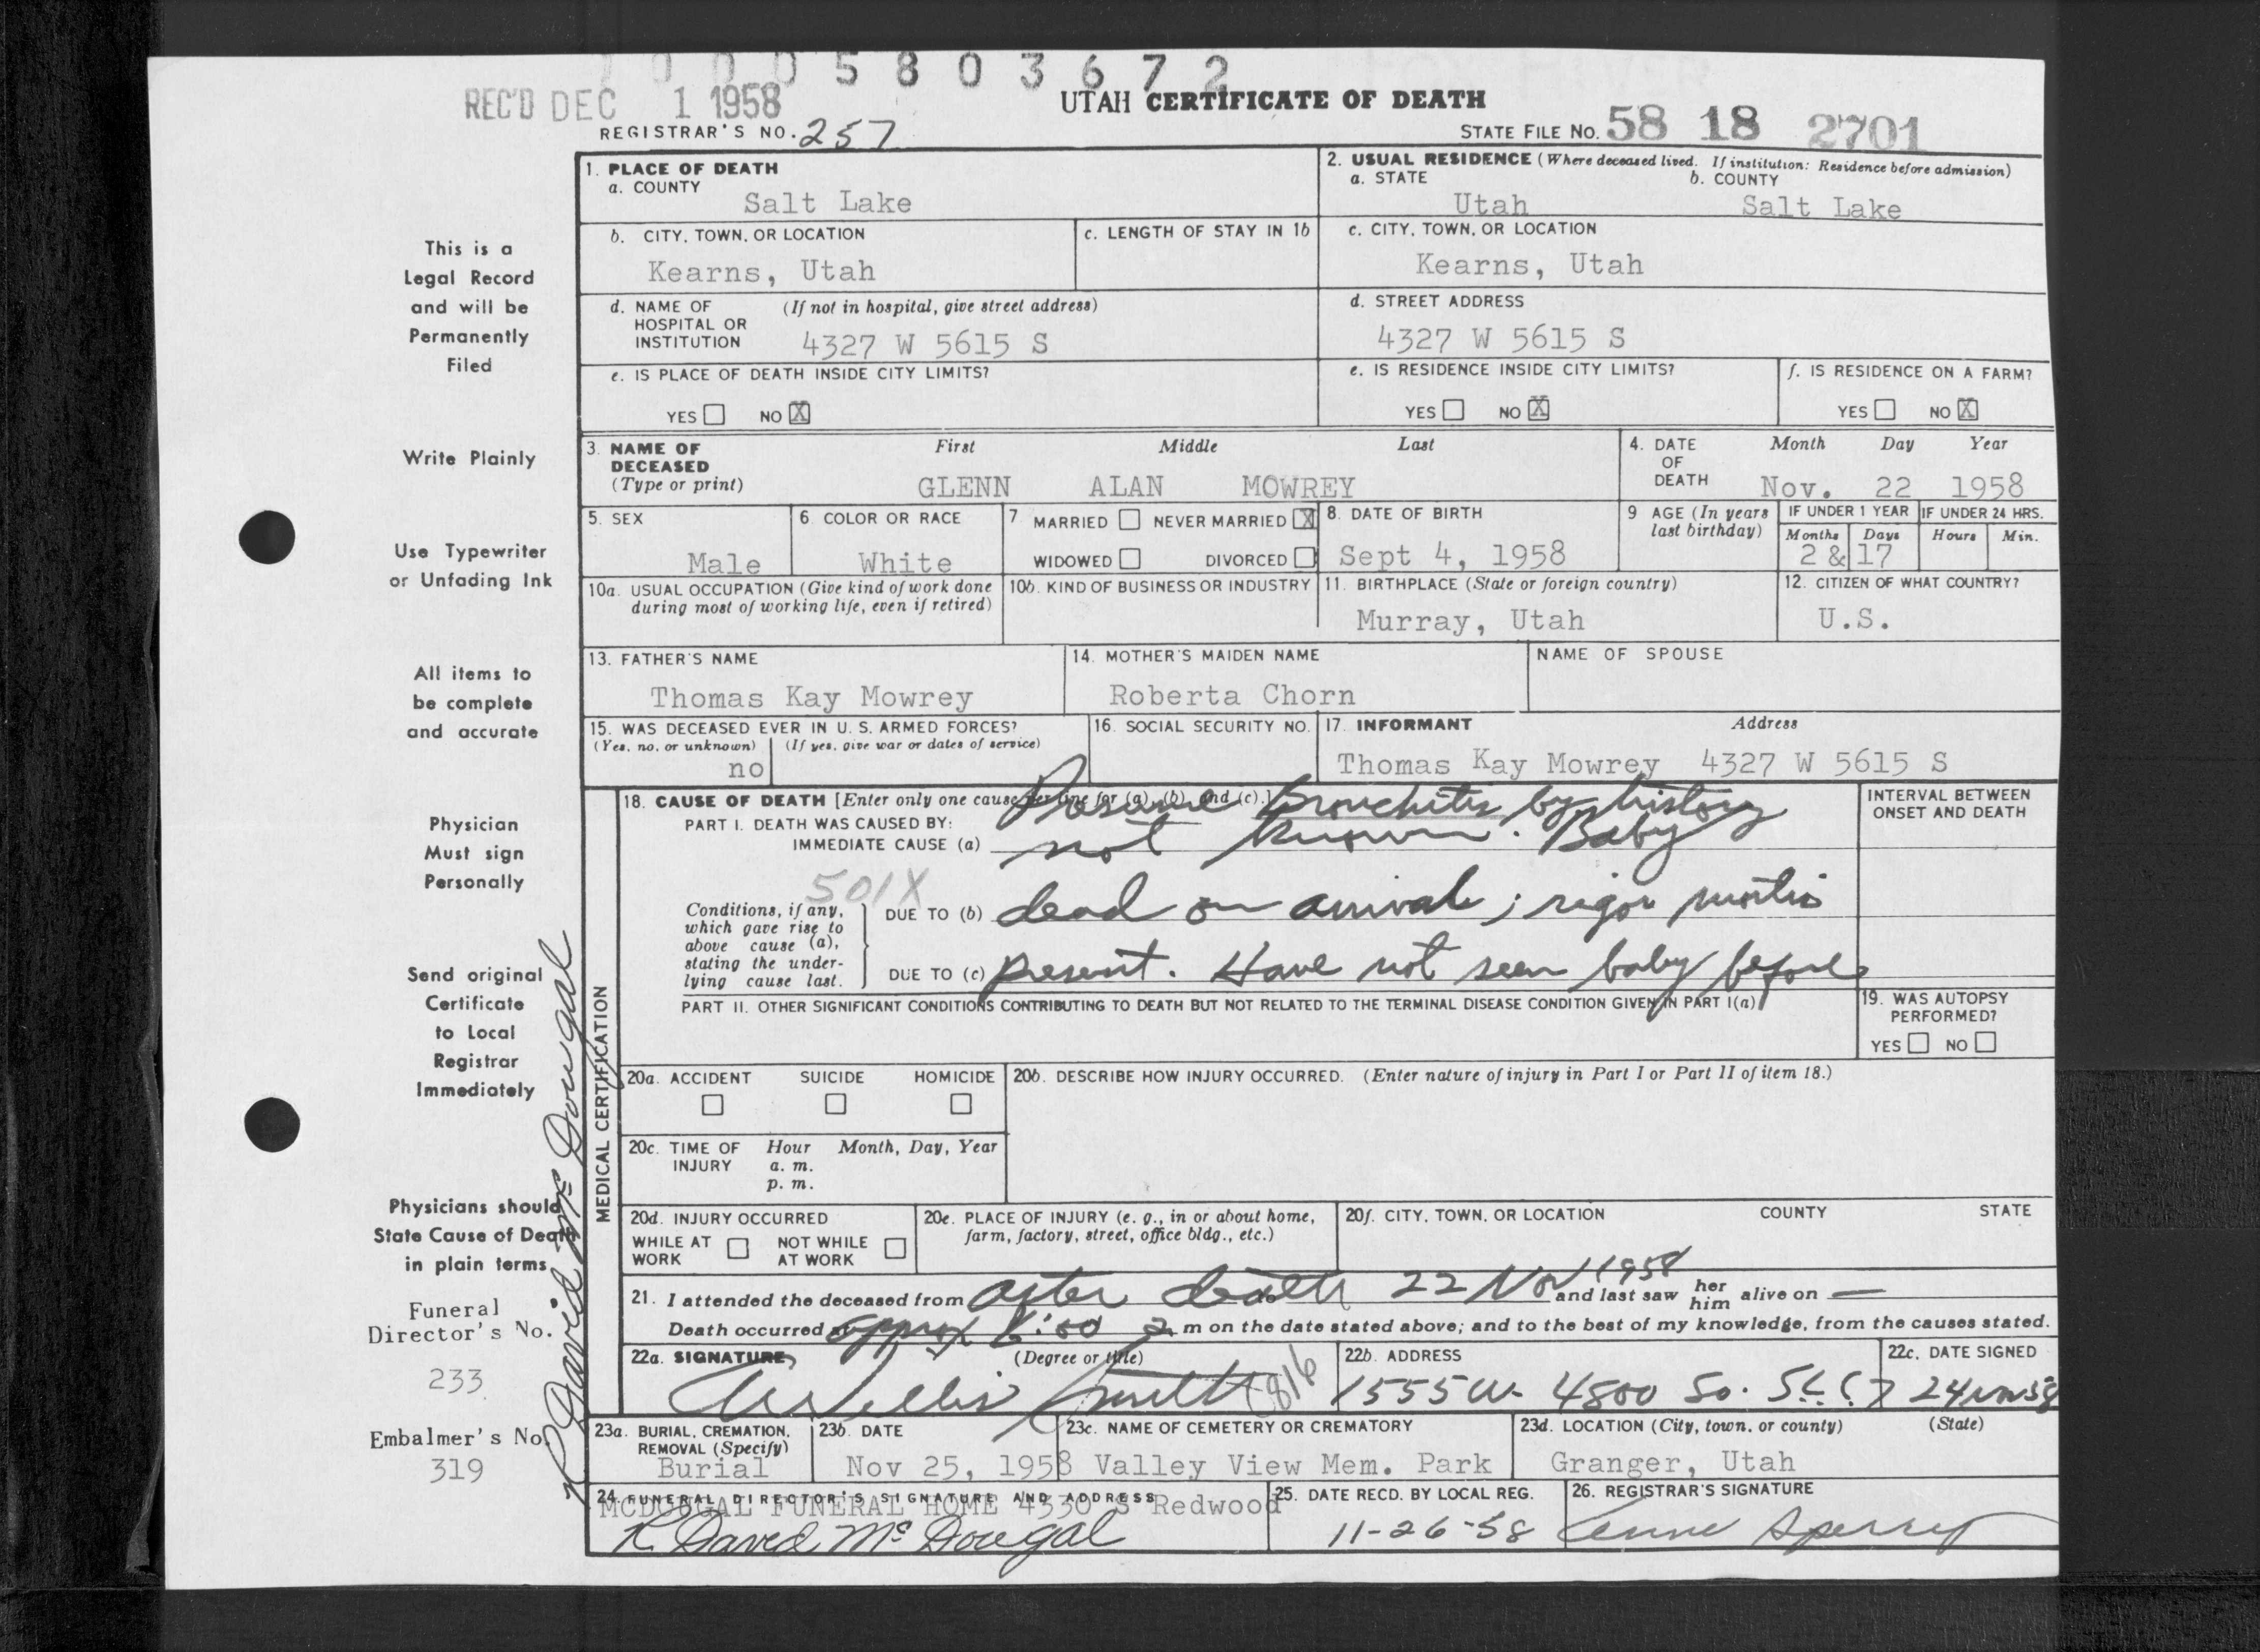 0 0 0 5 8 0 3 6 7 2
REC'D DEC 1 1958
UTAH CERTIFICATE OF DEATH
REGISTRAR'S NO. 257
STATE FILE NO. 58 18 2701
This is a
Legal Record
and will be
Permanently
Filed
Write Plainly
Use Typewriter
or Unfading Ink
All items to
be complete
and accurate
Physician
Must sign
Personally
Send original
Certificate
to Local
Registrar
Immediately
Physicians should
State Cause of Death
in plain terms
Funeral
Director's No.
233
Embalmer's No.
319
R David McDougal
1. PLACE OF DEATH
a. COUNTY
Salt Lake
2. USUAL RESIDENCE (Where deceased lived. If institution: Residence before admission)
a. STATE b. COUNTY
Utah Salt Lake
b. CITY, TOWN, OR LOCATION
Kearns, Utah
c. LENGTH OF STAY IN 1b
c. CITY, TOWN, OR LOCATION
Kearns, Utah
d. NAME OF (If not in hospital, give street address)
HOSPITAL OR
INSTITUTION 4327 W 5615 S
d. STREET ADDRESS
4327 W 5615 S
e. IS PLACE OF DEATH INSIDE CITY LIMITS?
YES NO X
e. IS RESIDENCE INSIDE CITY LIMITS?
YES NO X
f. IS RESIDENCE ON A FARM?
YES NO X
3. NAME OF First Middle Last
DECEASED
(Type or print) GLENN ALAN MOWREY
4. DATE Month Day Year
OF
DEATH Nov. 22 1958
5. SEX
Male
6. COLOR OR RACE
White
7 MARRIED NEVER MARRIED X
WIDOWED DIVORCED
8. DATE OF BIRTH
Sept 4, 1958
9 AGE (In years
last birthday)
IF UNDER 1 YEAR
Months Days
2 & 17
IF UNDER 24 HRS.
Hours Min.
10a. USUAL OCCUPATION (Give kind of work done
during most of working life, even if retired)
10b. KIND OF BUSINESS OR INDUSTRY
11. BIRTHPLACE (State or foreign country)
Murray, Utah
12. CITIZEN OF WHAT COUNTRY?
U.S.
13. FATHER'S NAME
Thomas Kay Mowrey
14. MOTHER'S MAIDEN NAME
Roberta Chorn
NAME OF SPOUSE
15. WAS DECEASED EVER IN U. S. ARMED FORCES?
(Yes, no, or unknown) (If yes, give war or dates of service)
no
16. SOCIAL SECURITY NO.
17. INFORMANT Address
Thomas Kay Mowrey 4327 W 5615 S
MEDICAL CERTIFICATION
18. CAUSE OF DEATH [Enter only one cause per line for (a), (b), and (c).]
Presume Bronchitis by history
PART I. DEATH WAS CAUSED BY:
IMMEDIATE CAUSE (a) not known. Baby
501X
Conditions, if any,
which gave rise to
above cause (a),
stating the under-
lying cause last.
DUE TO (b) dead on arrival; rigor mortis
DUE TO (c) present. Have not seen baby before
INTERVAL BETWEEN
ONSET AND DEATH
PART II. OTHER SIGNIFICANT CONDITIONS CONTRIBUTING TO DEATH BUT NOT RELATED TO THE TERMINAL DISEASE CONDITION GIVEN IN PART I(a)
19. WAS AUTOPSY
PERFORMED?
YES NO
20a. ACCIDENT SUICIDE HOMICIDE
20b. DESCRIBE HOW INJURY OCCURRED. (Enter nature of injury in Part I or Part II of item 18.)
20c. TIME OF Hour Month, Day, Year
INJURY a. m.
p. m.
20d. INJURY OCCURRED
WHILE AT NOT WHILE
WORK AT WORK
20e. PLACE OF INJURY (e. g., in or about home,
farm, factory, street, office bldg., etc.)
20f. CITY, TOWN, OR LOCATION COUNTY STATE
21. I attended the deceased from after death 22 Nov 1958 and last saw her him alive on —
Death occurred at approx :00 a m on the date stated above; and to the best of my knowledge, from the causes stated.
22a. SIGNATURE (Degree or title)
Willis Smith 1816
22b. ADDRESS
1555 W. 4800 So. SLC 7
22c. DATE SIGNED
24 Nov 58
23a. BURIAL, CREMATION,
REMOVAL (Specify)
Burial
23b. DATE
Nov 25, 1958
23c. NAME OF CEMETERY OR CREMATORY
Valley View Mem. Park
23d. LOCATION (City, town, or county) (State)
Granger, Utah
24. FUNERAL DIRECTOR'S SIGNATURE AND ADDRESS
MCDOUGAL FUNERAL HOME 4330 S Redwood
R David McDougal
25. DATE RECD. BY LOCAL REG.
11-26-58
26. REGISTRAR'S SIGNATURE
Anne Sperry